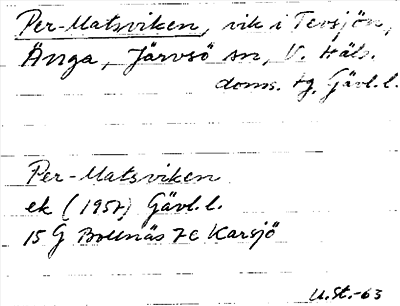 Per-Matsviken, vik i Tevsjön,
Änga, Järvsö sn, V. Häls.
doms. tg, Gävl.l.
Per-Matsviken
ek (1957) Gävl.l.
15 G Bollnäs 7 e Karsjö
U.St.-63